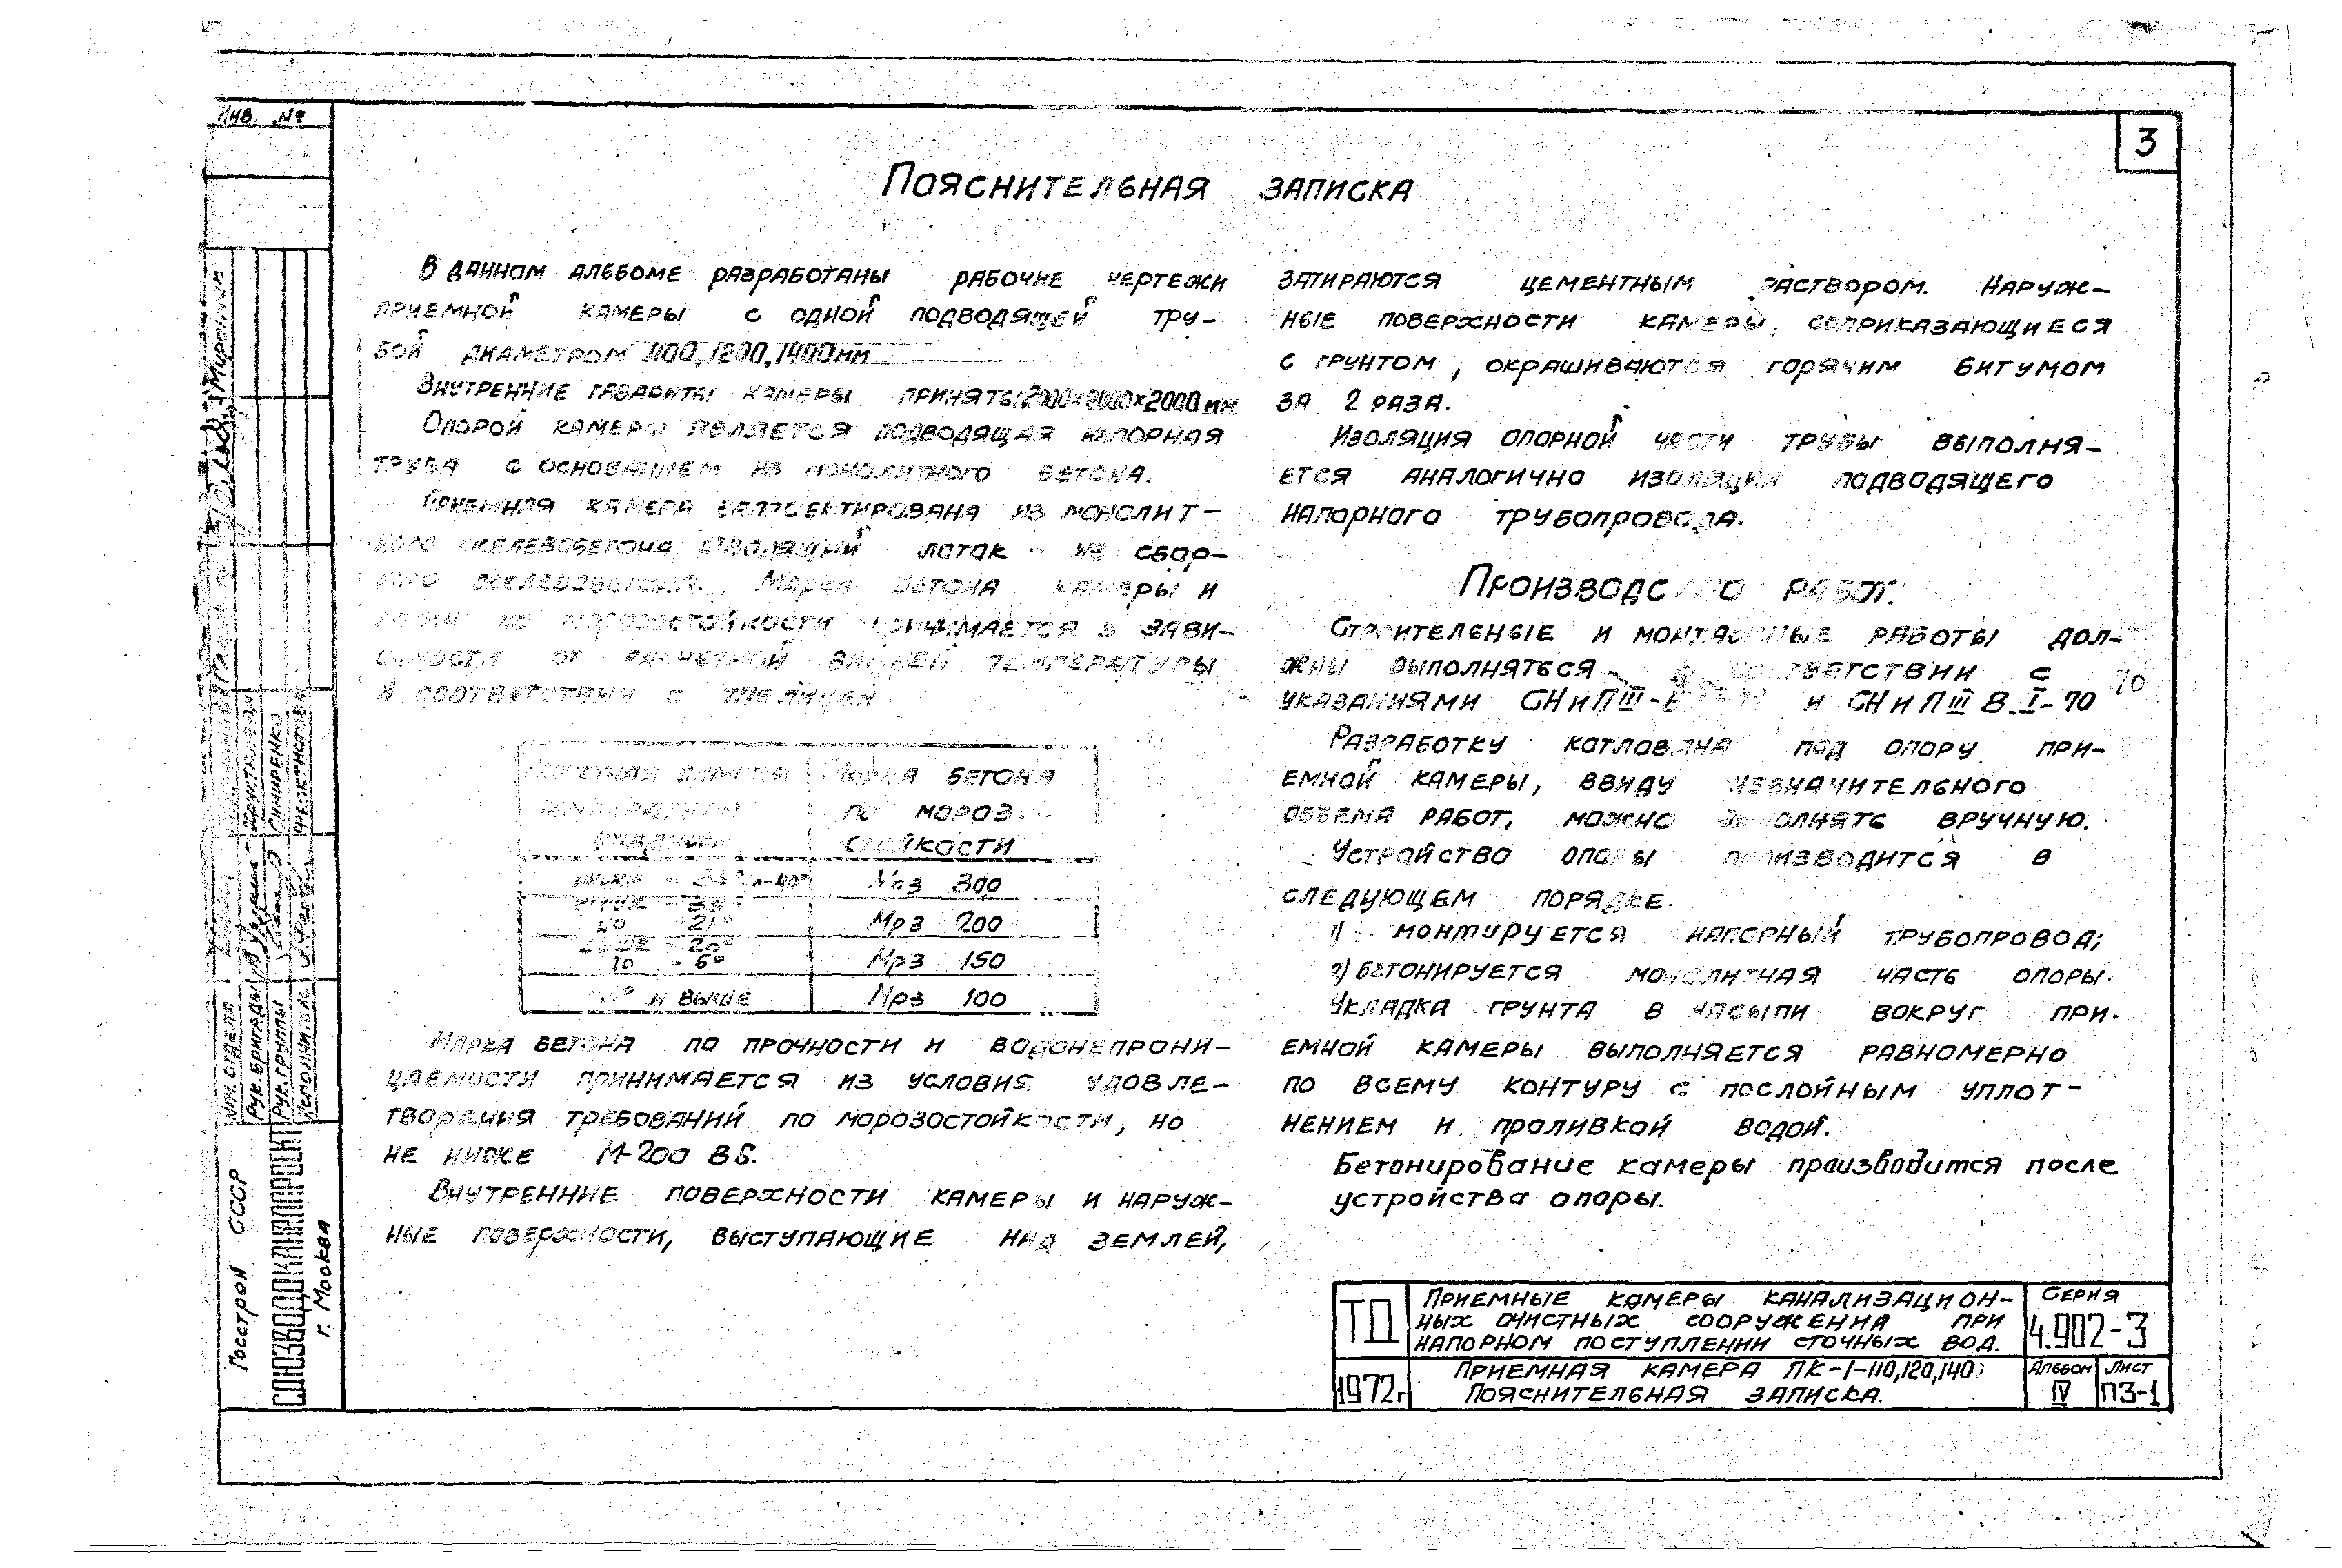 Инв. №
3
Пояснительная записка
В данном альбоме разработаны рабочие чертежи
приемной камеры с одной подводящей тру-
бой диаметром 1100, 1200, 1400 мм
Внутренние габариты камеры приняты 2000×2000×2000 мм
Опорой камеры является подводящая напорная
труба с основанием из монолитного бетона.
Приемная камера запроектирована из монолит-
ного железобетона, отводящий лоток - из сбор-
ного железобетона. Марка бетона камеры и
лотка по морозостойкости принимается в зави-
симости от расчетной зимней температуры
в соответствии с таблицей
Расчетная зимняя температура Марка бетона
по морозо-
стойкости
ниже -35° -40° Мрз 300
ниже -35°
до -21° Мрз 200
выше -20°
до -6° Мрз 150
° и выше Мрз 100
Марка бетона по прочности и водонепрони-
цаемости принимается из условия удовле-
творения требований по морозостойкости, но
не ниже М-200 В6.
Внутренние поверхности камеры и наруж-
ные поверхности, выступающие над землей,
затираются цементным раствором. Наруж-
ные поверхности камеры, соприказающиеся
с грунтом, окрашиваются горячим битумом
за 2 раза.
Изоляция опорной части трубы выполня-
ется аналогично изоляции подводящего
напорного трубопровода.
Производство работ.
Строительные и монтажные работы дол-
жны выполняться в соответствии с
указаниями СНиП III- и СНиП III В.I-70
Разработку котлована под опору при-
емной камеры, ввиду незначительного
объема работ, можно выполнять вручную.
Устройство опоры производится в
следующем порядке:
1) монтируется напорный трубопровод;
2) бетонируется монолитная часть опоры.
Укладка грунта в насыпи вокруг при-
емной камеры выполняется равномерно
по всему контуру с послойным уплот-
нением и проливкой водой.
Бетонирование камеры производится после
устройства опоры.
Нач. отдела
Рук. бригады
Рук. группы Синиренко
Исполнитель
Госстрой СССР
СОЮЗВОДОКАНАЛПРОЕКТ
г. Москва
ТД
Приемные камеры канализацион-
ных очистных сооружения при
напорном поступлении сточных вод.
Серия
4.902-3
1972г
Приемная камера ПК-1-110,120,140
Пояснительная записка.
Альбом
IV
Лист
ПЗ-1